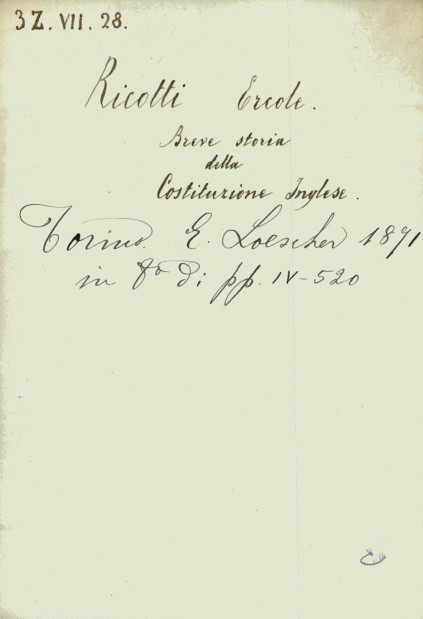 3 Z. VII. 28.
Ricotti Ercole.
Breve storia
della
Costituzione Inglese.
Torino. E. Loescher 1871
in 8º di pp. IV-520